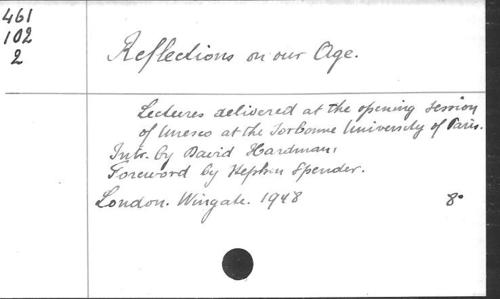 461
102
2
Reflections on our Age.
Lectures delivered at the opening session
of Unesco at the Sorbonne University of Paris.
Intr. by David Hardman,
Foreword by Stephen Spender.
London. Wingate. 1948 8°